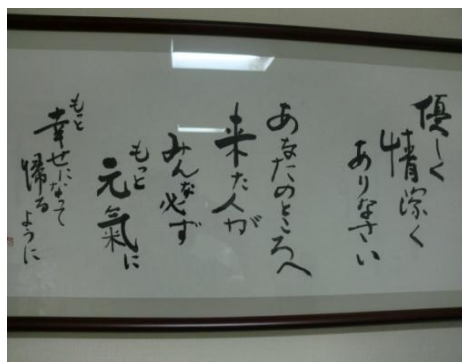 優しく
情深く
ありなさい
あなたのところへ
来た人が
みんな必ず
もっと
元氣に
もっと
幸せになって
帰る
ように